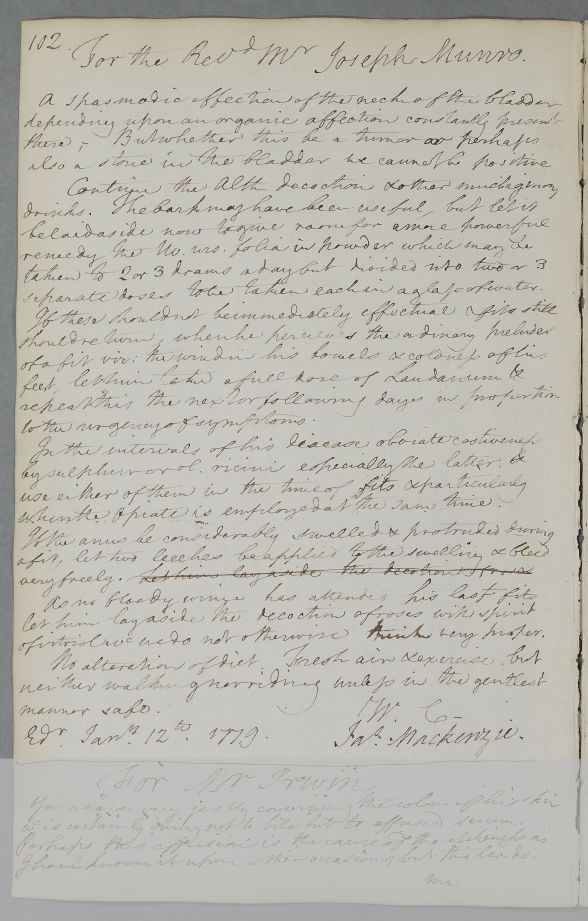 102
For the Revd Mr Joseph Munro.
A spasmodic affection of the neck of the bladder
depending upon an organic affection constantly present
there; But whether this be a tumor or perhaps
also a stone in the bladder we cannot be positive
Continue the Alth. decoction & other mucilaginous
drinks. The bark may have been useful, but let it
be laid aside now to give room for a more powerful
remedy the Uv. urs. folia in powder which may be
taken to 2 or 3 drams a day but divided into two or 3
separate doses to be taken each in a glass of water.
If these should not be immediately effectual & fits still
should return, when he perceives the ordinary preludes
of a fit viz: the wind in his bowels & coldness of his
feet, let him take a full dose of Laudanum &
repeat this the next or following days in proportion
to the urgency of symptoms.
In the intervals of his deacease obviate costiveness
by sulphur or ol. ricini especially the latter, &
use either of them in the time of fits & particularly
when the Opiate is employed at the same time.
If the anus be considerably swelled & protruded during
a fit, let two leeches be applied to the swelling & bleed
very freely. Let him lay aside the decotion of roses
As no bloody urine has attended his last fits
let him lay aside the decoction of roses with spirit
of vitriol we do not otherwise think very proper.
No alteration of diet. Fresh air & exercise but
neither walking nor riding unless in the gentlest
manner safe.
W C
Edr. Janry 12th. 1779. Jas. Mackenzie.
For Mr Irwin
You reason very justly concerning the colour of his skin
it is certainly owing not to bile but to effused serum.
Perhaps this effusion is the cause of the itchyness as
I have known it upon other occasions but this leads
me